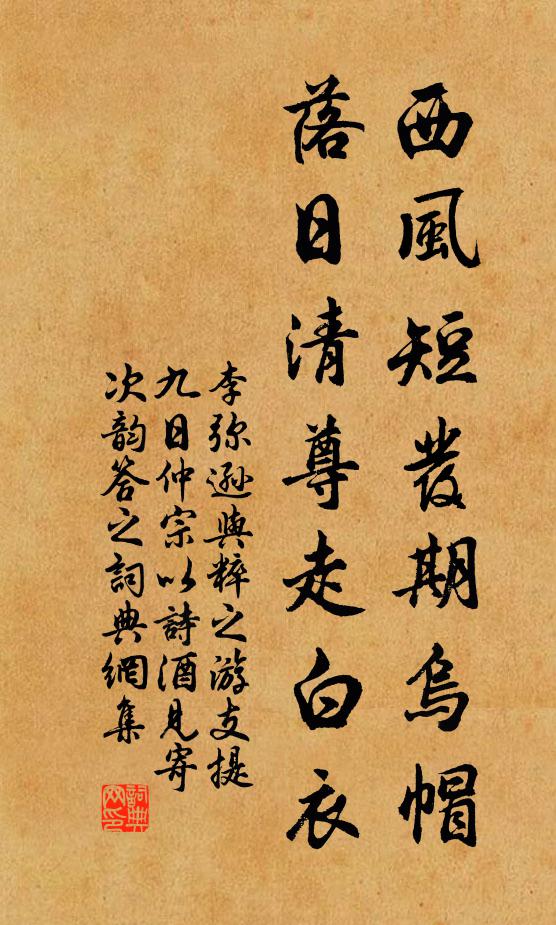 西風短發期烏帽
落日清尊走白衣
李弥遜與粹之游支提
九日仲宗以詩酒見寄
次韵答之詞典網集
詞典網印